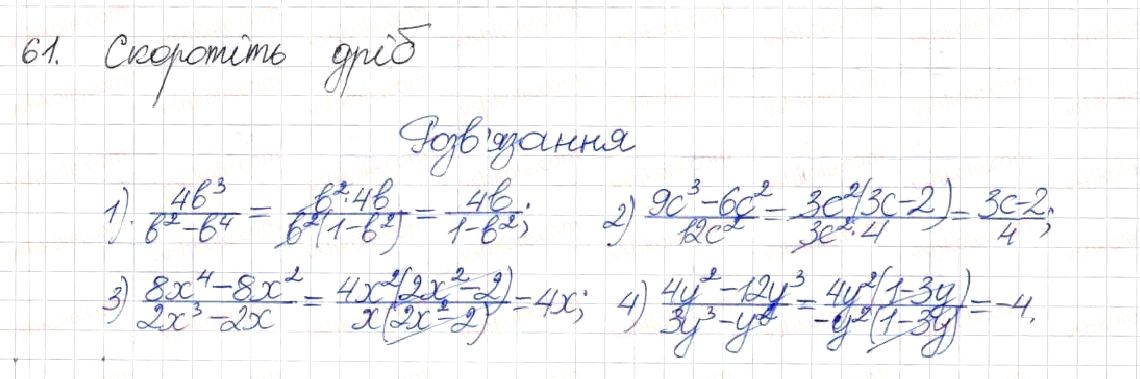 61. Скоротіть дріб
Розв'язання
1). 4b³/(b²−b⁴) = b²·4b/(b²(1−b²)) = 4b/(1−b²); 2) (9c³−6c²)/(12c²) = 3c²(3c−2)/(3c²·4) = (3c−2)/4;
3) (8x⁴−8x²)/(2x³−2x) = 4x²(2x²−2)/(x(2x²−2)) = 4x; 4) (4y²−12y³)/(3y³−y²) = 4y²(1−3y)/(−y²(1−3y)) = −4.